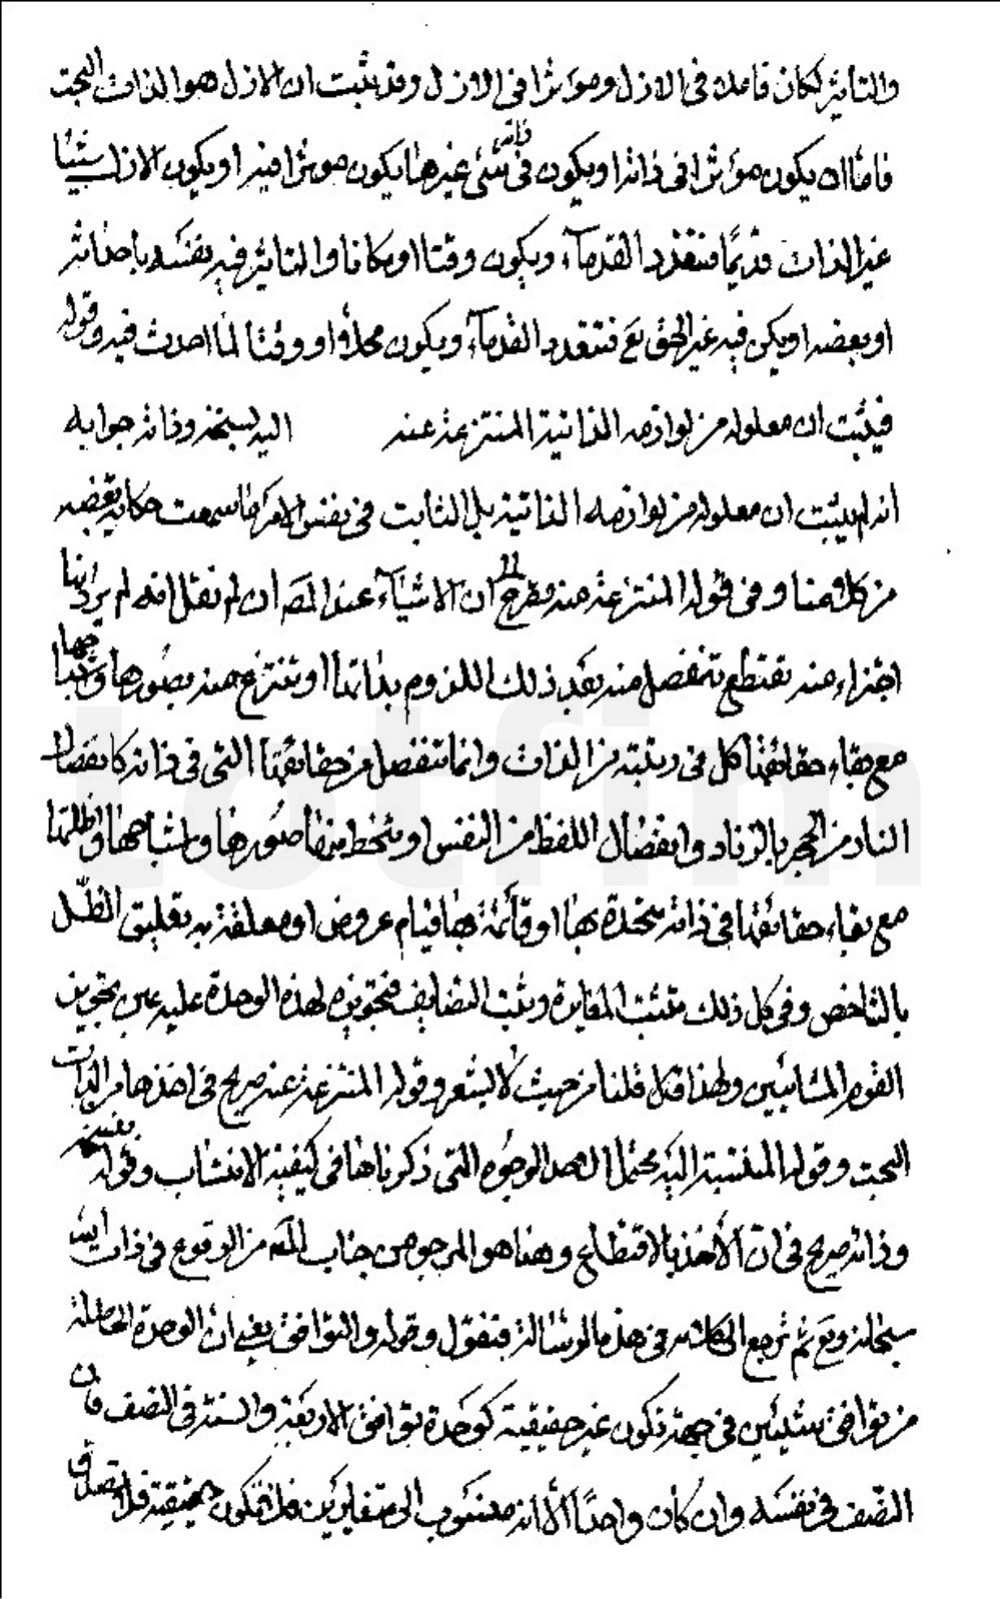 والتأثير لكان فاعلا في الازل ومؤثرا في الازل وقد يثبت ان الازل هو الذات البحت
فاما ان يكون مؤثرا في ذاته او يكون في ذاته شئ غيرها يكون مؤثرا فيه او يكون الازل شيئا
غير الذات قديما فتعدد القدماء ويكون وقتا او مكانا والتأثير فيه نفسه باحداثه
او بعضه او يكن فيه غير الحق تع فتعدد القدماء ويكون محلا او وقتا لما احدث فيه وقوله
فيثبت ان معلوله من لوازمه الذاتية المنتزعة عنه اليه بسنخه وذاته جوابه
انه لم يثبت ان معلوله من لوازمه الذاتية بل الثابت في نفس الامر ما سمعت حكاية بعضه
من كلامنا وفي قوله المنتزعة منه تصريح الى ان الاشياء عند المص ان لم نقل انه لم يرد انها
اجزاء منه تقتطع تنفصل منه بعد ذلك اللزوم بذاتها او تنتزع منه بصورها
مع بقاء حقائقها كل في رتبته من الذات وانما تنفصل من حقائقها التي في ذاته كانفصال
النار من الحجر بالزناد وانفصال اللفظ من النفس او تنحط منها صورها واشباحها واظلتها
مع بقاء حقائقها في ذاته متحدة بها او قائمة بها قيام عروض او معلقة به تعليق الظل
بالشاخص وفي كل ذلك تثبت المغايرة ويثبت التضايف فتجويزه لهذه الوحدة عليه عين تجويز
القوم المشائيين ولهذا قلنا من حيث لا يشعر وقوله المنتزعة عنه صريح في اخذها من الذات
البحت وقوله المنتسبة اليه محتمل لاحد الوجوه التي ذكرناها في كيفية الانتساب وقوله بسنخه
وذاته صريح في ان الاخذ بالاقتطاع وهذا هو المرجو من جناب المص من الوقوع في ذات الله
سبحانه وتع ثم نرجع الى كلامه في هذه الرسالة فنقول وقوله والتوافق يعني ان الوحدة الحاصلة
من توافق شيئين في جهة تكون غير حقيقية كوحدة توافق الاربعة والستة في النصف فان
النصف في نفسه وان كان واحدا الا انه منسوب الى متغايرين فلا تكون حقيقية